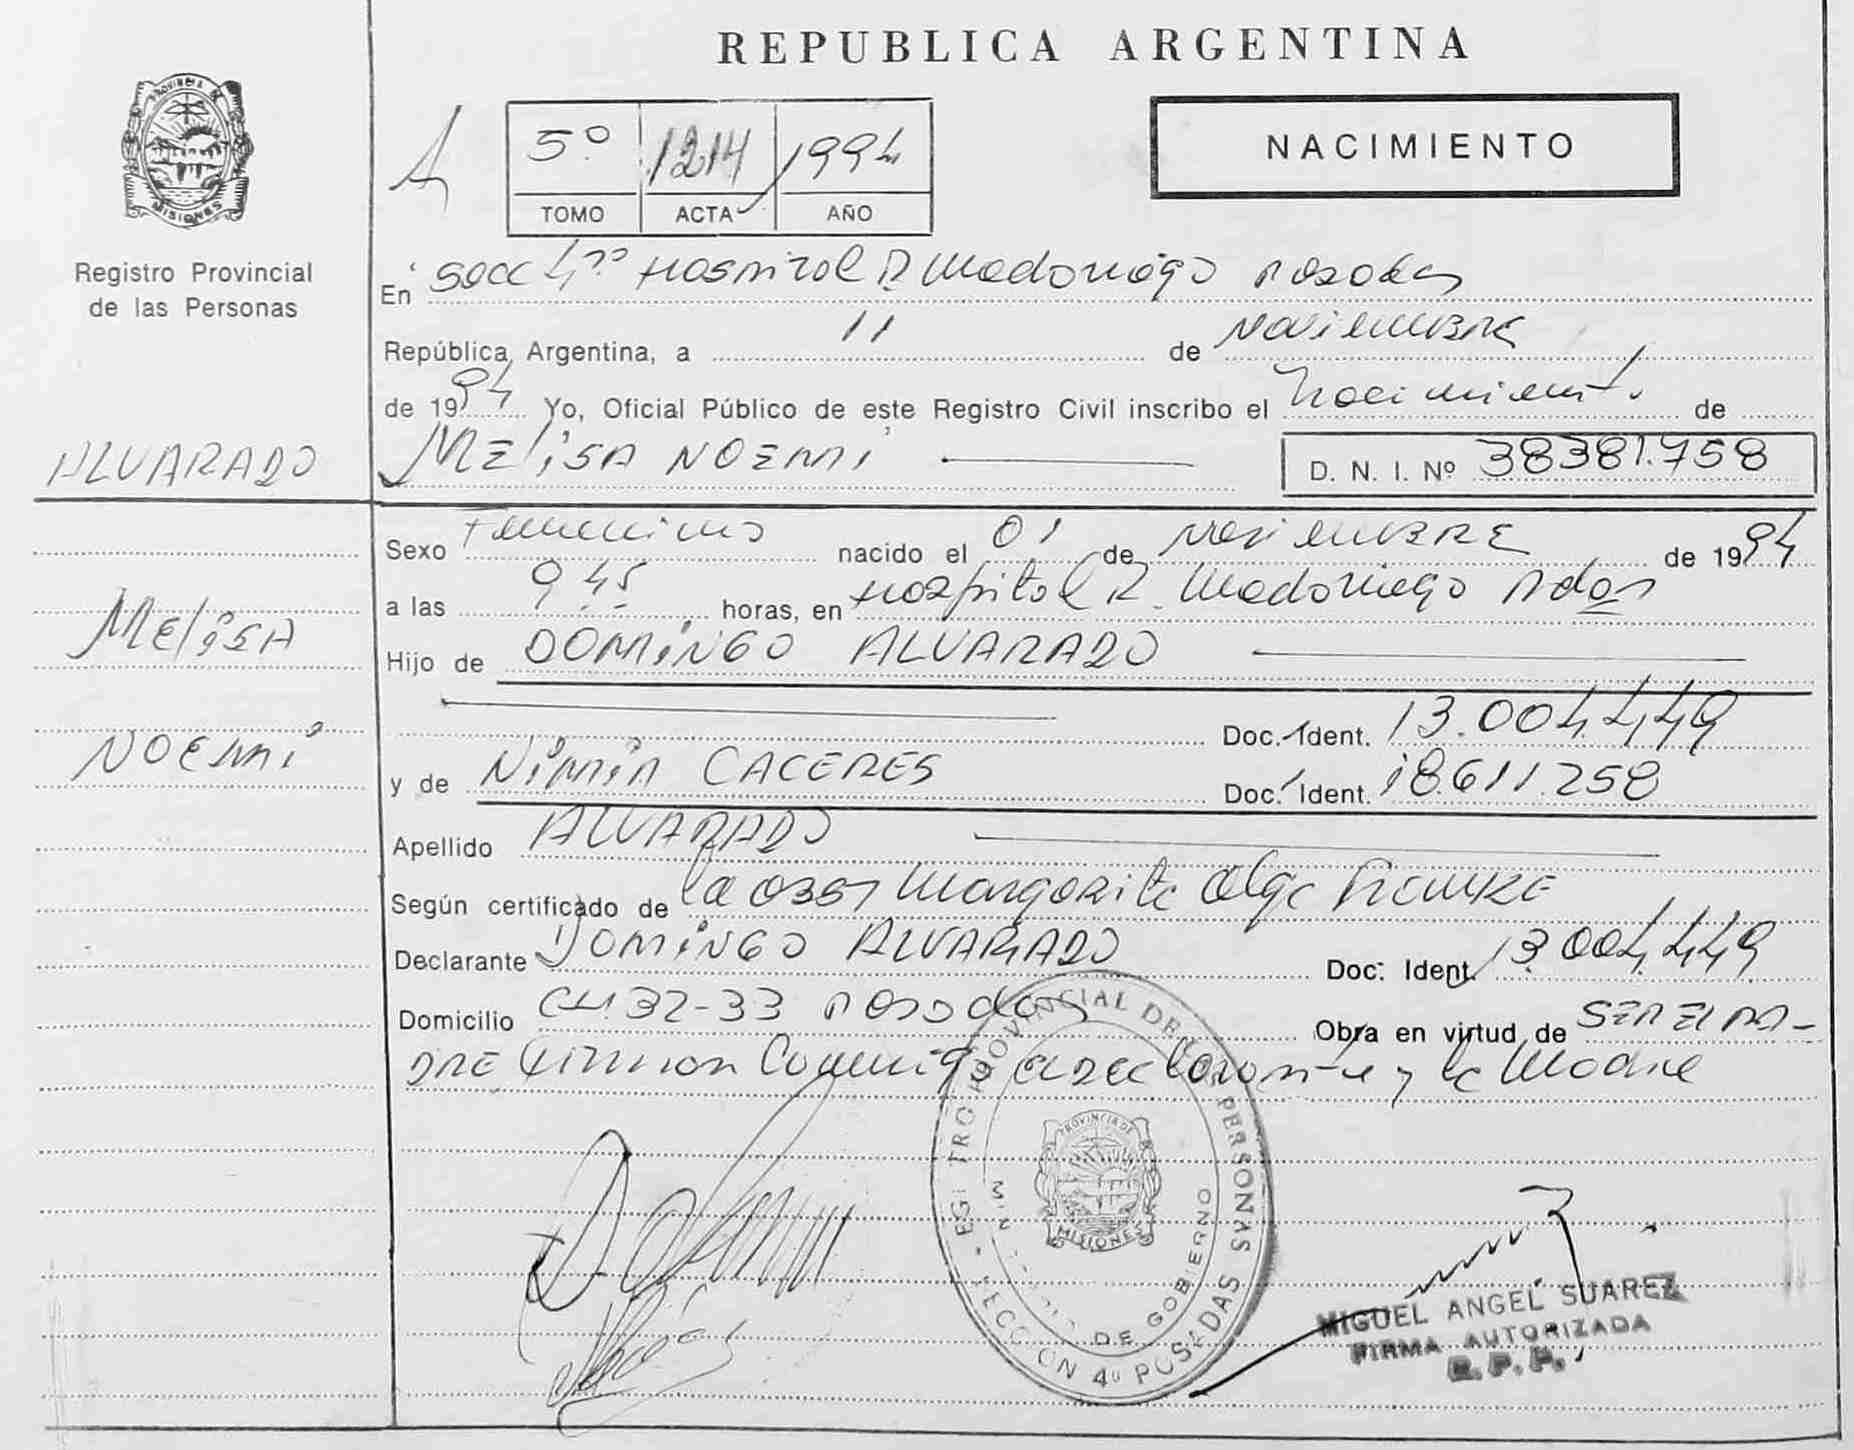 REPUBLICA ARGENTINA
PROVINCIA DE
MISIONES
Registro Provincial
de las Personas
A
5º 1214 1994
TOMO ACTA AÑO
NACIMIENTO
En Secc 4ta Hospital R Madariaga Posadas
República Argentina, a 11 de Noviembre
de 1994 Yo, Oficial Público de este Registro Civil inscribo el Nacimiento de
MELISA NOEMI D. N. I. Nº 38381.758
ALVARADO
MELISA
NOEMI
Sexo Femenino nacido el 01 de Noviembre de 1994
a las 9 45 horas, en Hospital R. Madariaga Pdas
Hijo de DOMINGO ALVARADO
Doc. Ident. 13.004.449
y de NIMIA CACERES Doc. Ident. 18611.258
Apellido ALVARADO
Según certificado de la Obst Margarita Olga
Declarante DOMINGO ALVARADO Doc. Ident. 13.004.449
Domicilio CH 32-33 Posadas Obra en virtud de SER EL PA-
DRE Firman Conmigo el declarante y la Madre
REGISTRO PROVINCIAL DE LAS PERSONAS
MINISTERIO DE GOBIERNO
SECCION 4º POSADAS
PROVINCIA DE
MISIONES
MIGUEL ANGEL SUAREZ
FIRMA AUTORIZADA
R. P. P.